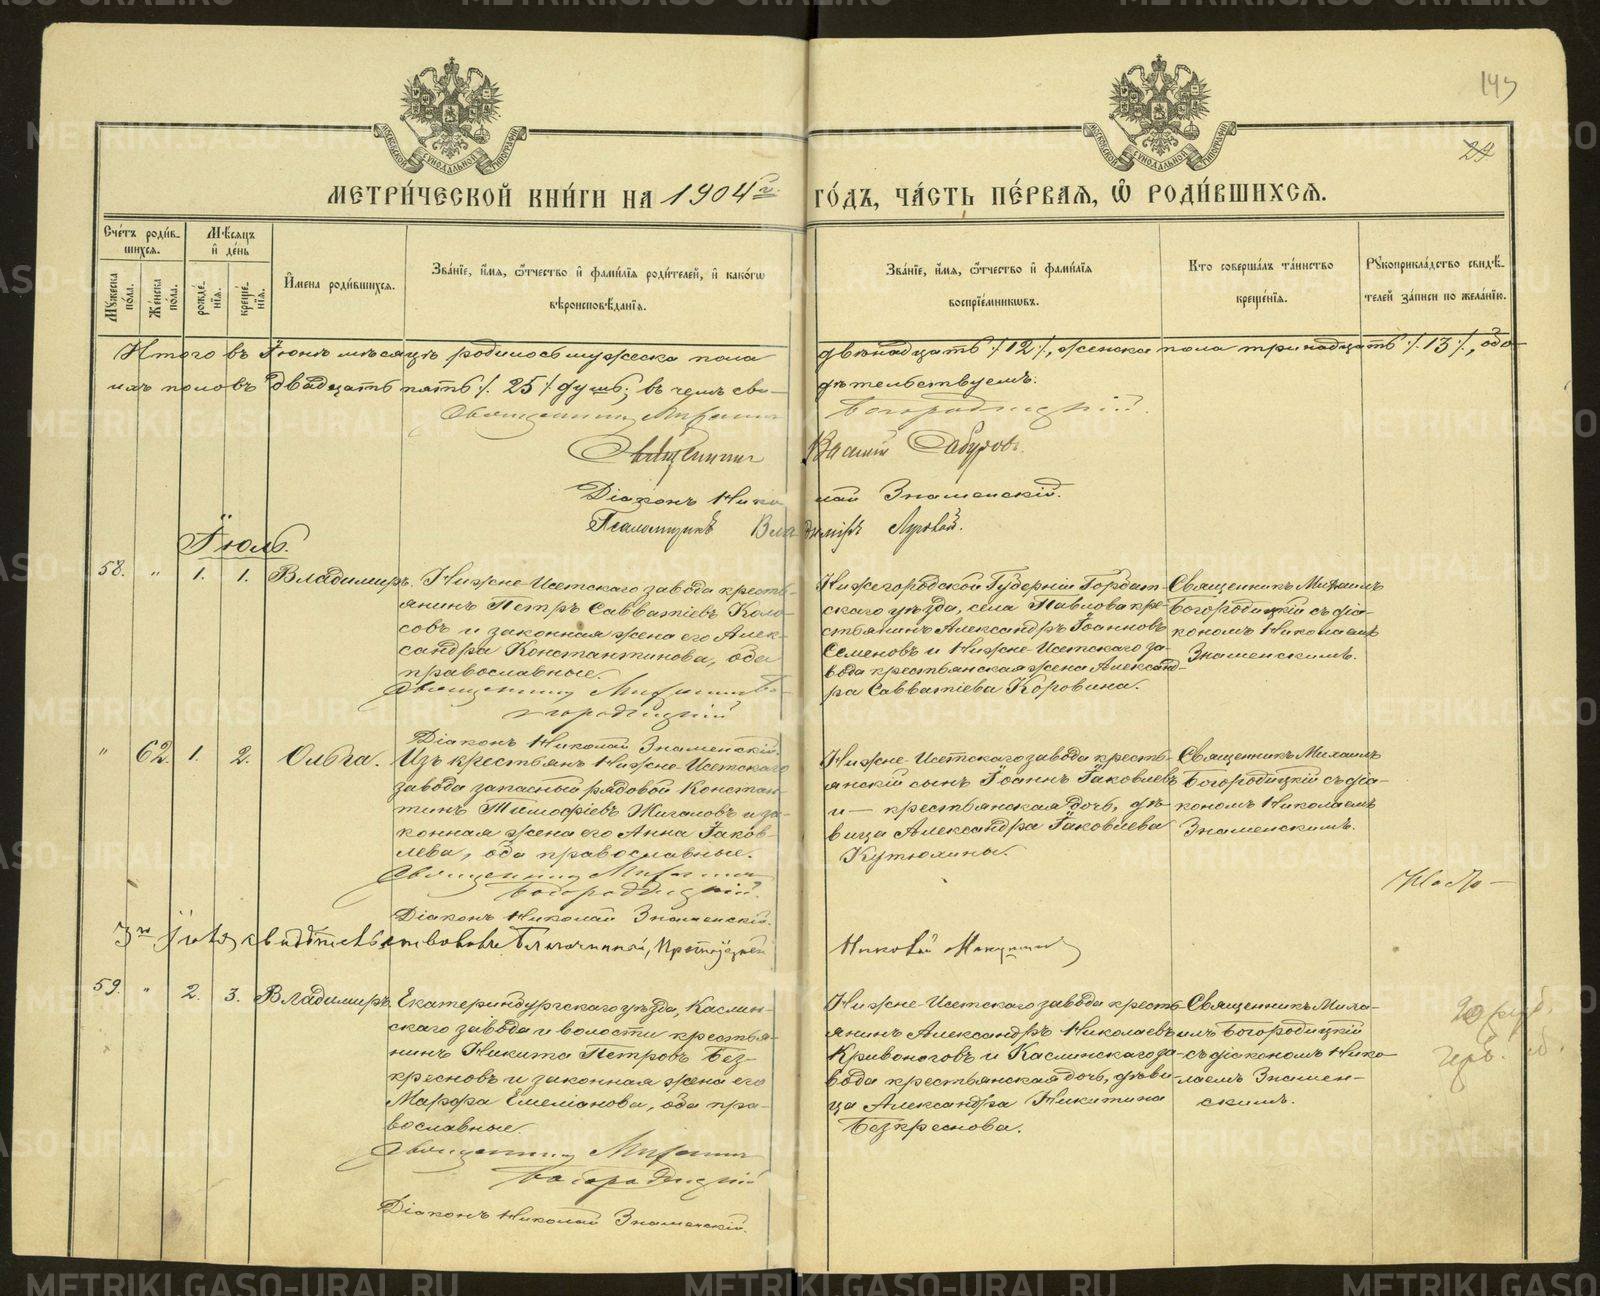 149
24
МОСКОВСКОЙ СѴНОДАЛЬНОЙ ТИПОГРАФІИ
МОСКОВСКОЙ СѴНОДАЛЬНОЙ ТИПОГРАФІИ
МЕТРИ́ЧЕСКОЙ КНИ́ГИ НА 1904 г. ГО́ДЪ, ЧА́СТЬ ПЕ́РВАЯ, Ѽ РОДИ́ВШИХСЯ.
Сче́тъ роди́в-
шихся.
Мѣ́сяцъ
и҆ де́нь
Мꙋжеска пола.
Же́нска пола.
рожде́-
нїя.
креще́-
нїя.
И҆мена роди́вшихся.
Зва́нїе, и҆́мя, ѻ҆́тчество и҆ фами́лїя роди́телей, и҆ како́гѡ
вѣроисповѣ́данїя.
Зва́нїе, и҆́мя, ѻ҆́тчество и҆ фами́лїя
воспрїе́мникѡвъ.
Кто соверша́лъ та́инство
креще́нїя.
Рꙋкоприкла́дство свидѣ́-
телей за́писи по жела́нїю.
Итого въ Іюнѣ мѣсяцѣ родилось мужеска пола двѣнадцать /12/, женска пола тринадцать /13/, обо-
ихъ половъ двадцать пять /25/ душъ; въ чемъ сви-дѣтельствуемъ:
Священникъ Михаилъ Богородицкій.
Священникъ Василій Сабуровъ.
Діаконъ Николай Знаменскій.
Псаломщикъ Владиміръ Луговой.
Іюль.
58. " 1. 1. Владимиръ.
Нижне-Исетскаго завода кресть-
янинъ Петръ Савватіевъ Коло-
совъ и законная жена его Алек-
сандра Константинова, оба
православные.
Священникъ Михаилъ Бо-
городицкій
Діаконъ Николай Знаменскій.
Нижегородской Губерніи Горбат-
скаго уѣзда, села Павлова кре-
стьянинъ Александръ Іоанновъ
Семеновъ и Нижне-Исетскаго за-
вода крестьянская жена Александ-
ра Савватіева Коровина.
Священникъ Михаилъ
Богородицкій съ діа-
кономъ Николаемъ
Знаменскимъ.
" 62. 1. 2. Ольга.
Изъ крестьянъ Нижне-Исетскаго
завода запасный рядовой Констан-
тинъ Тимофіевъ Жигаловъ и за-
конная жена его Анна Іаков-
лева, оба православные.
Священникъ Михаилъ
Богородицкій.
Діаконъ Николай Знаменскій.
Нижне-Исетскаго завода кресть-
янскій сынъ Іоаннъ Іаковлевъ
и — крестьянская дочь, дѣ-
вица Александра Іаковлева
Кутюхины.
Священникъ Михаилъ
Богородицкій съ діа-
кономъ Николаемъ
Знаменскимъ.
3го Іюля свидѣтельствовалъ Благочинный, Протоіерей
Николай
59. " 2. 3. Владимиръ.
Екатеринбургскаго уѣзда, Каслин-
скаго завода и волости крестья-
нинъ Никита Петровъ Без-
кресновъ и законная жена его
Марфа Емеліанова, оба пра-
вославные.
Священникъ Михаилъ
Богородицкій
Діаконъ Николай Знаменскій.
Нижне-Исетскаго завода кресть-
янинъ Александръ Николаевъ
Кривоноговъ и Каслинскаго за-
вода крестьянская дочь, дѣви-
ца Александра Никитина
Безкреснова.
Священникъ Миха-
илъ Богородицкій
съ діакономъ Нико-
лаемъ Знамен-
скимъ.
METRIKI.GASO-URAL.RU